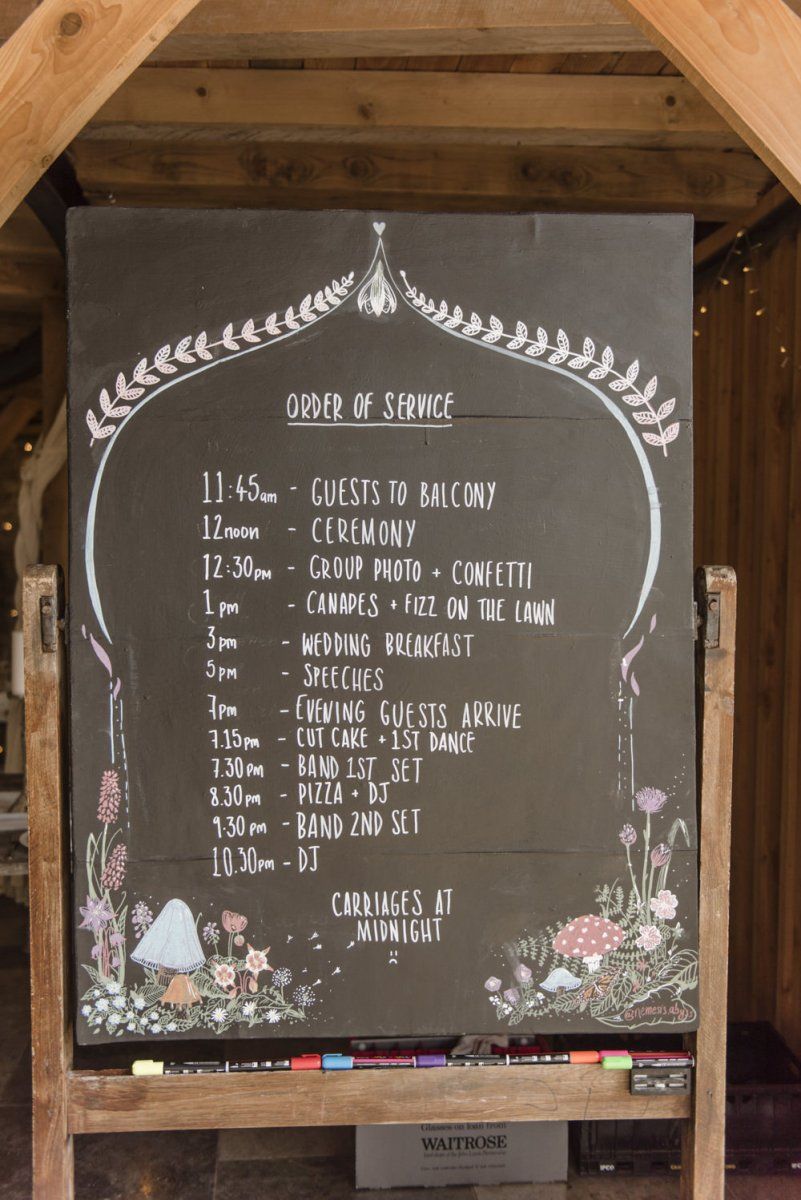 ORDER OF SERVICE
11:45am - GUESTS TO BALCONY
12noon - CEREMONY
12:30PM - GROUP PHOTO + CONFETTI
1 pm - CANAPES + FIZZ ON THE LAWN
3pm - WEDDING BREAKFAST
5pm - SPEECHES
7pm - EVENING GUESTS ARRIVE
7.15pm - CUT CAKE + 1ST DANCE
7.30pm - BAND 1ST SET
8.30pm - PIZZA + DJ
9.30pm - BAND 2ND SET
10.30pm - DJ
CARRIAGES AT
MIDNIGHT
Glasses on loan from
WAITROSE